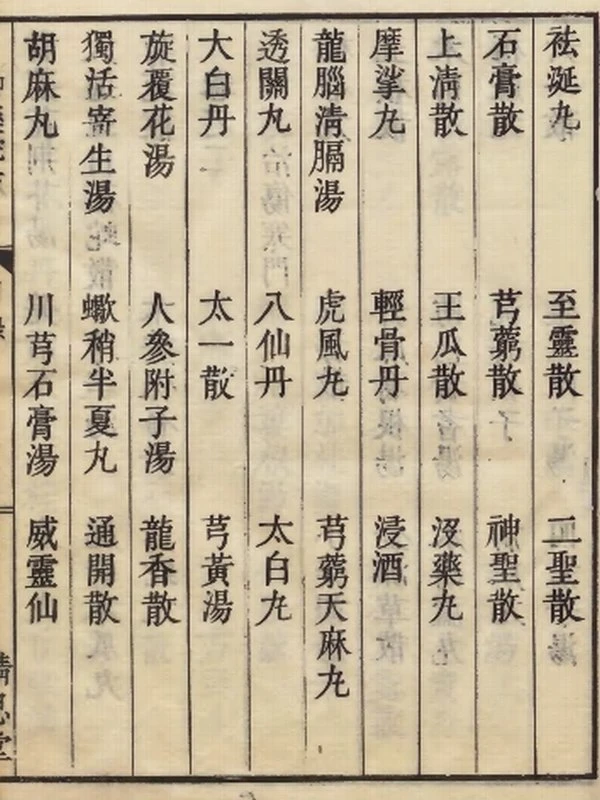 祛涎丸 至靈散 二聖散
石膏散 芎藭散 神聖散
上淸散 王瓜散 沒藥丸
摩挲丸 輕骨丹 浸酒
龍腦淸膈湯 虎風丸 芎藭天麻丸
透關丸 八仙丹 太白丸
大白丹 太一散 芎黃湯
旋覆花湯 人參附子湯 龍香散
獨活寄生湯 蠍稍半夏丸 通開散
胡麻丸 川芎石膏湯 威靈仙